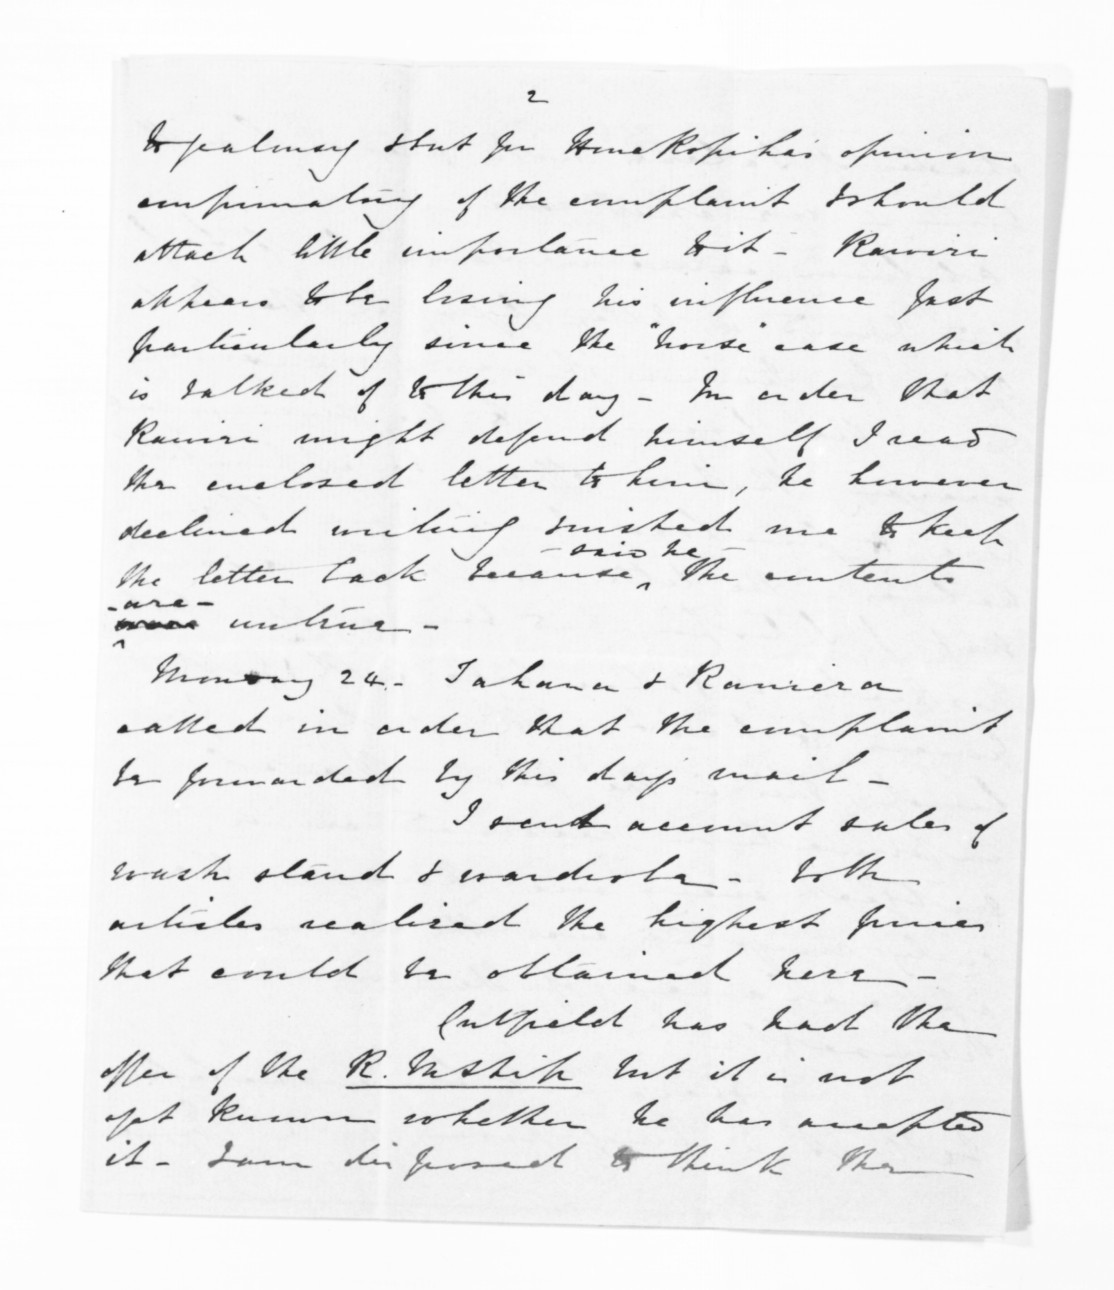 2
to jealousy & but for Hone Ropiha's opinion
confirmatory of the complaint I should
attach little importance to it - Rawiri
appears to be losing his influence fast
particularly since the "horse" case which
is talked of to this day - In order that
Rawiri might defend himself I read
the enclosed letter to him, he however
declined writing & wished me to keep
- said he -
the letter back because, the contents
- are -
untrue -
Monday 24 - Tahana & Raniera
called in order that the complaint
be forwarded by this day's mail -
I send account sales of
wash stand & wardrobe - both
articles realised the highest prices
that could be obtained here -
Cutfield has had the
offer of the R. Mship but it is not
yet known whether he has accepted
it - I am disposed to think the